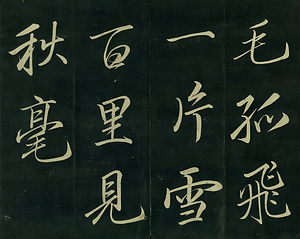 毛孤飛
一片雪
百里見
秋毫